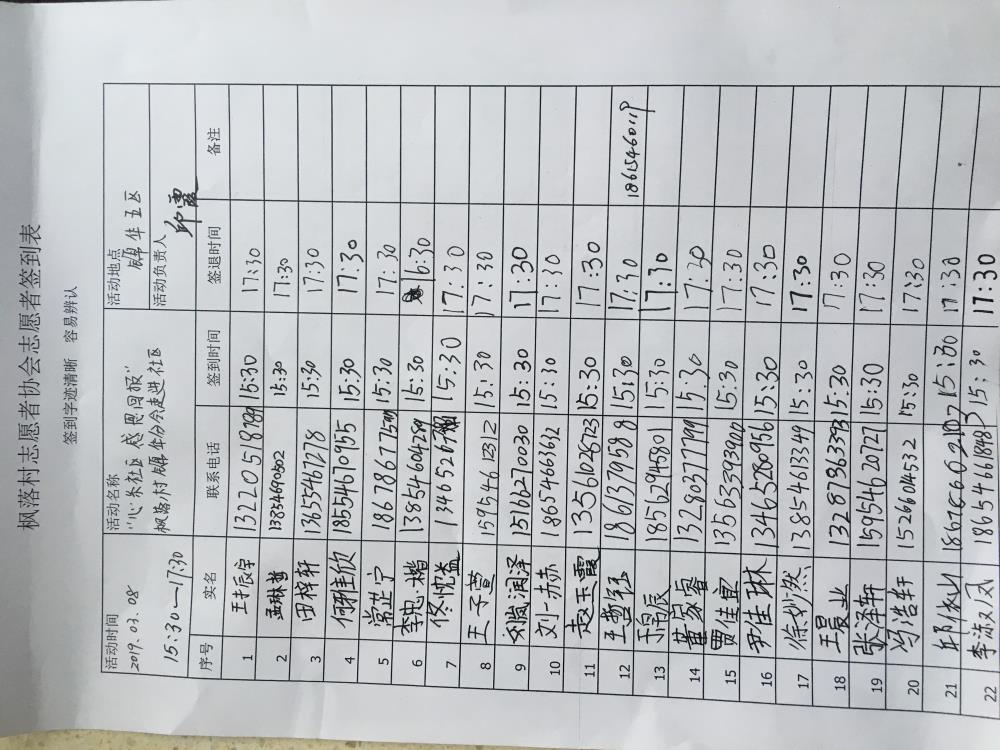 枫落村志愿者协会志愿者签到表
签到字迹清晰 容易辨认
活动时间 2019.03.08 15:30—17:30
活动名称 枫落村 走进社区
活动地点 锦华五区
活动负责人 邱霞
序号 实名 联系电话 签到时间 签退时间 备注
1 15:30 17:30
2 孟琳哲 13854690502 15:30 17:30
3 田梓轩 13655467278 15:30 17:30
4 何雅欣 18554670955 15:30 17:30
5 常芷宁 15:30 17:30
6 李忠楷 15:30 16:30
7 15:30 17:30
8 王子萱 15954612312 15:30 17:30
9 刘岚润泽 1516270030 15:30 17:30
10 刘一赫 18654663632 15:30 17:30
11 赵玉霞 13561026723 15:30 17:30
12 18613795988 15:30 17:30 18615460119
13 18562945801 15:30 17:30
14 黄家睿 13283777799 15:30 17:30
15 贾佳宜 13563393900 15:30 17:30
16 尹佳琳 13465280956 15:30 17:30
17 徐妙然 13854613349 15:30 17:30
18 王晨业 13287363393 15:30 17:30
19 张泽轩 15954620727 15:30 17:30
20 冯浩轩 15266014532 15:30 17:30
21 15:30 17:30
22 15:30 17:30